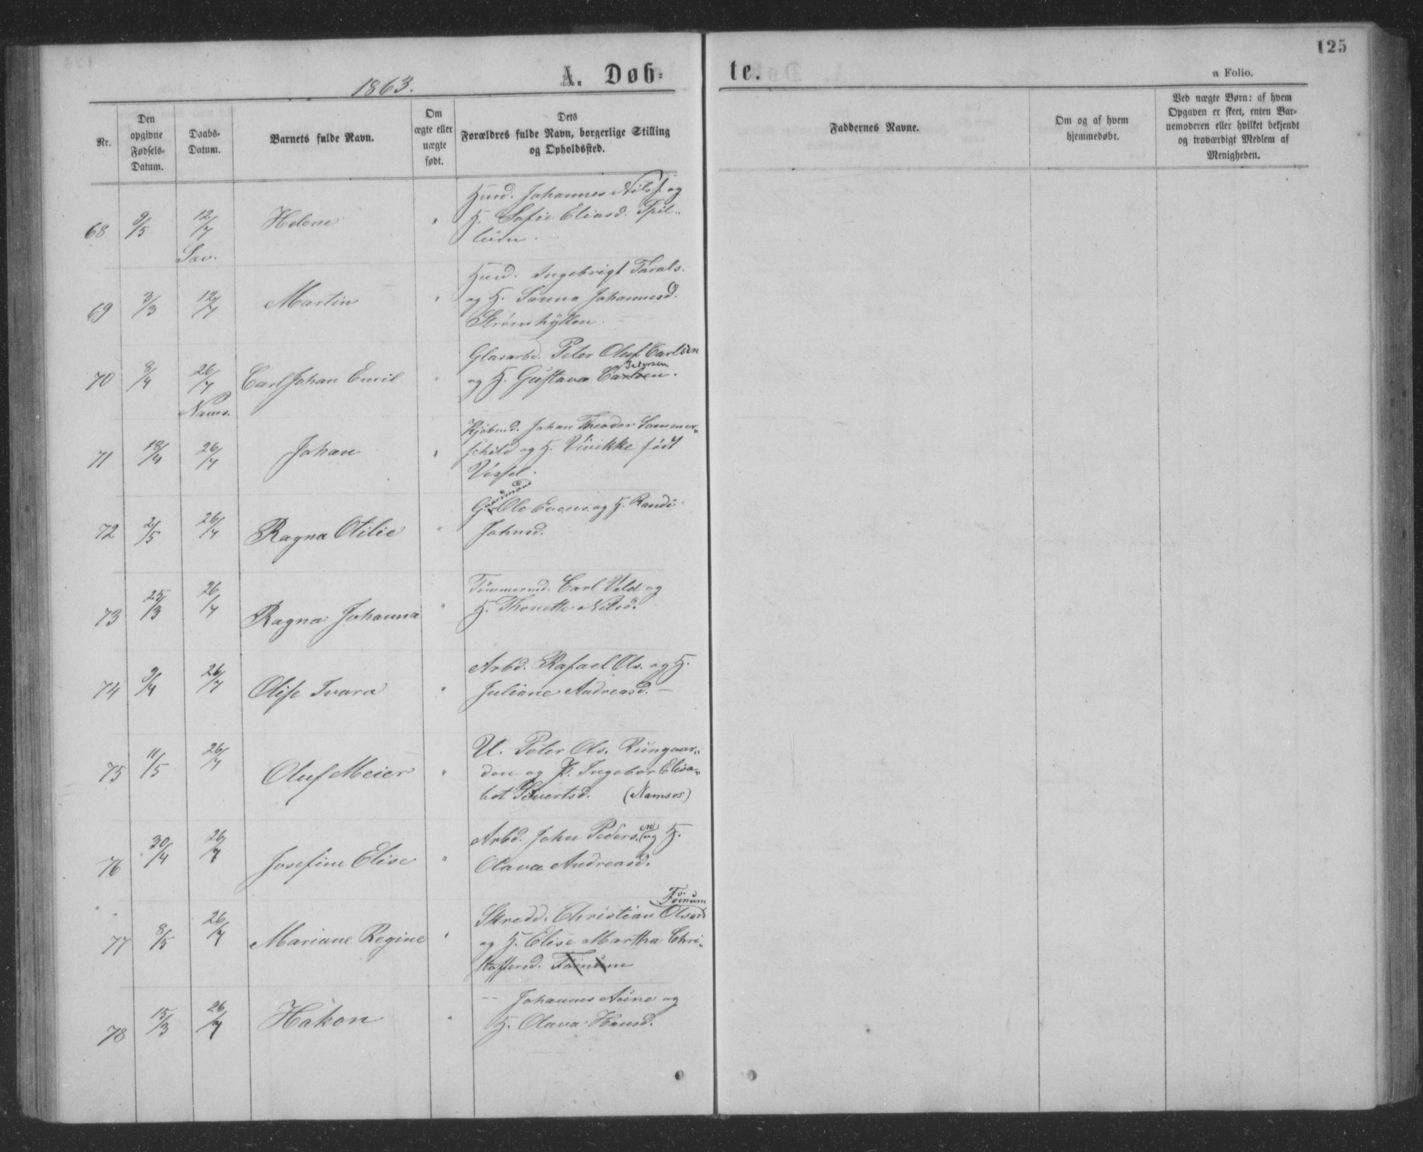 125
1863.
A. Døb-
te.
a Folio.
Nr.
Den opgivne Fødsels-Datum.
Daabs-Datum.
Barnets fulde Navn.
Om ægte eller uægte født.
Dets Forældres fulde Navn, borgerlige Stilling og Opholdssted.
Faddernes Navne.
Om og af hvem hjemmedøbt.
Ved uægte Børn: af hvem Opgaven er skeet, enten Barnemoderen eller hvilket bekjendt og troværdigt Medlem af Menigheden.
68 9/5 12/7 Helene " Huusd. Johannes Nils. og
H. Sofie Eliasd. Spil-
leren.
Sav.
69 3/3 12/7 Martin " Huusd. Ingebrigt Tarals.
og H. Johannesd.
Strømhylla.
70 8/4 26/7 Carl Johan Emil " Glasarbd. Peter Oluf Carlsen
og H. Gustava Petersen
Nams.
71 18/4 26/7 Johan " Kjøbmd. Johan Theodor Sommer-
schild og H. Vivikke født
Wessel.
72 2/5 26/7 Ragna Otilie " Gaardmand Ole Evens. og H. Randi
Johnsd.
73 25/3 26/7 Ragna Johanna " Tømmermd. Carl Vold og
H. Thonette Nilsd.
74 9/4 26/7 Olise Ivara " Arbd. Rafael Ols. og H.
Juliane Andreasd.
75 11/5 26/7 Oluf Meier " U. Peter Ols. Kungaar-
den og P. Ingebor Elisa-
bet Sivertsd. (Namsos)
76 30/4 26/7 Josefine Elise " Arbd. Johan Pedersen og H.
Olava Andreasd.
77 8/5 26/7 Mariane Regine " Skredd. Christian Olsen
og H. Elise Martha Chri-
stoffersd.
78 15/3 26/7 Håkon " Johannes Aune og
H. Olava Hansd.